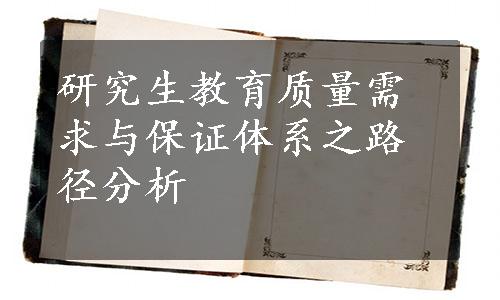 研究生教育质量需
求与保证体系之路
径分析